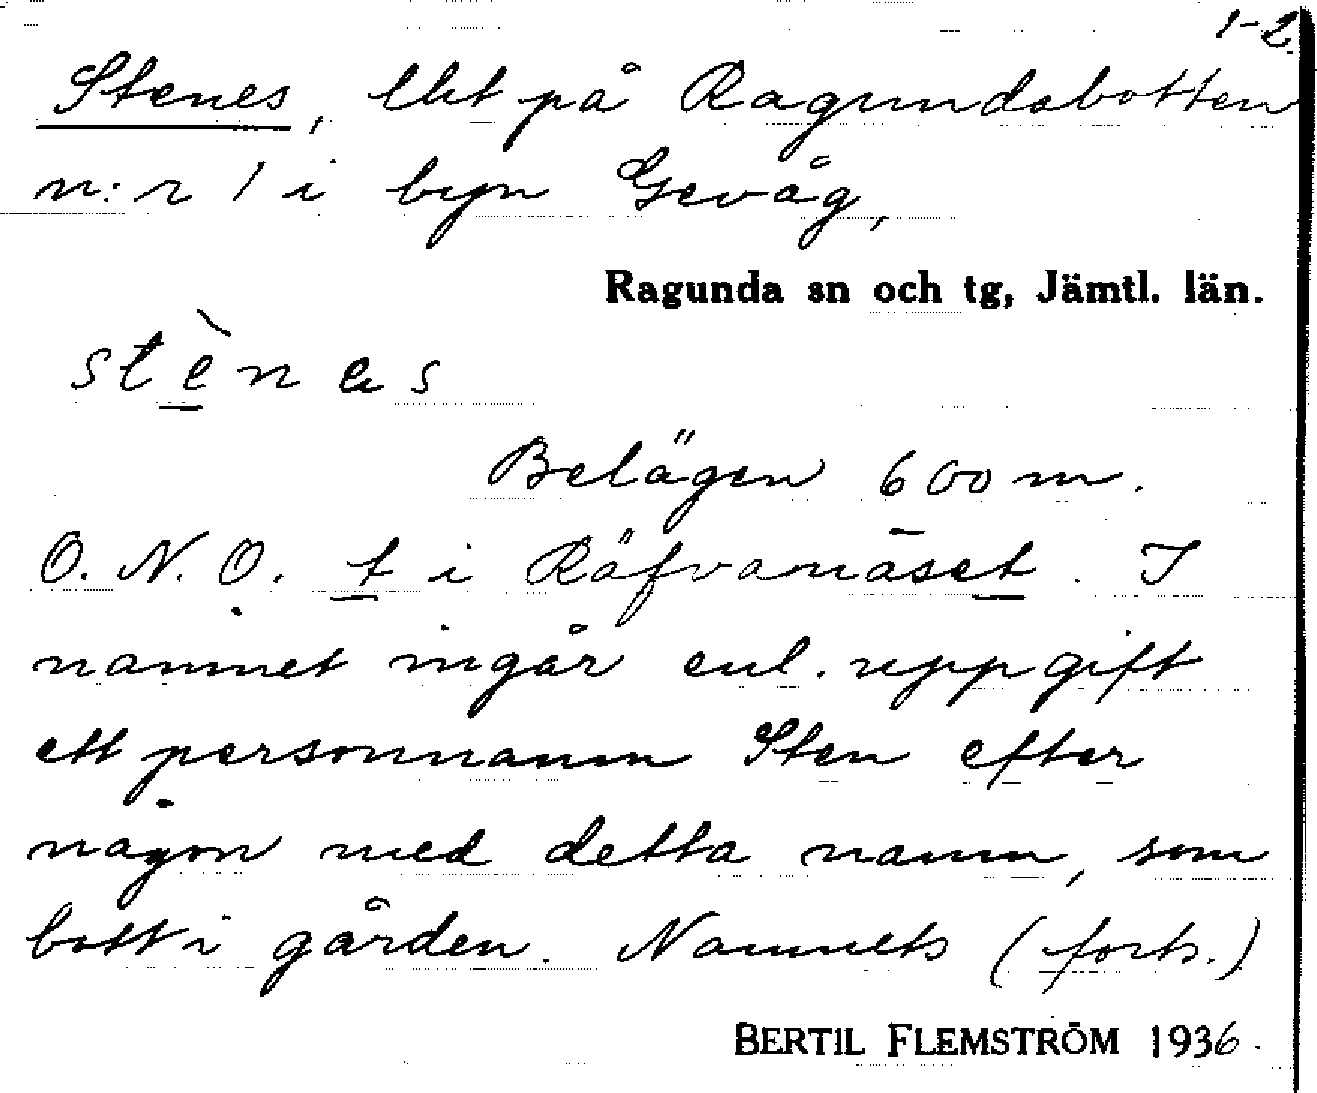 1-2.
Stenes, lht på Ragundabotten
n:r 1 i byn Gevåg,
Ragunda sn och tg, Jämtl. län.
stènes
Belägen 600 m.
O.N.O. t i Räfvanäset. I
namnet ingår enl. uppgift
ett personnamn Sten efter
någon med detta namn, som
bott i gården. Namnets (forts.)
BERTIL FLEMSTRÖM 1936.